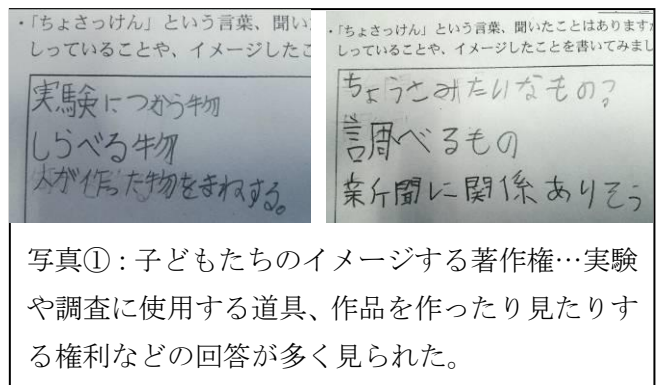 ・「ちょさっけん」という言葉、聞い
しっていることや、イメージしたこ
実験につかう物
しらべる物
人が作った物をまねする。
・「ちょさっけん」という言葉、聞いたことはあります
しっていることや、イメージしたことを書いてみまし
ちょうさみたいなもの？
調べるもの
新聞に関係ありそう
写真①：子どもたちのイメージする著作権…実験
や調査に使用する道具、作品を作ったり見たりす
る権利などの回答が多く見られた。